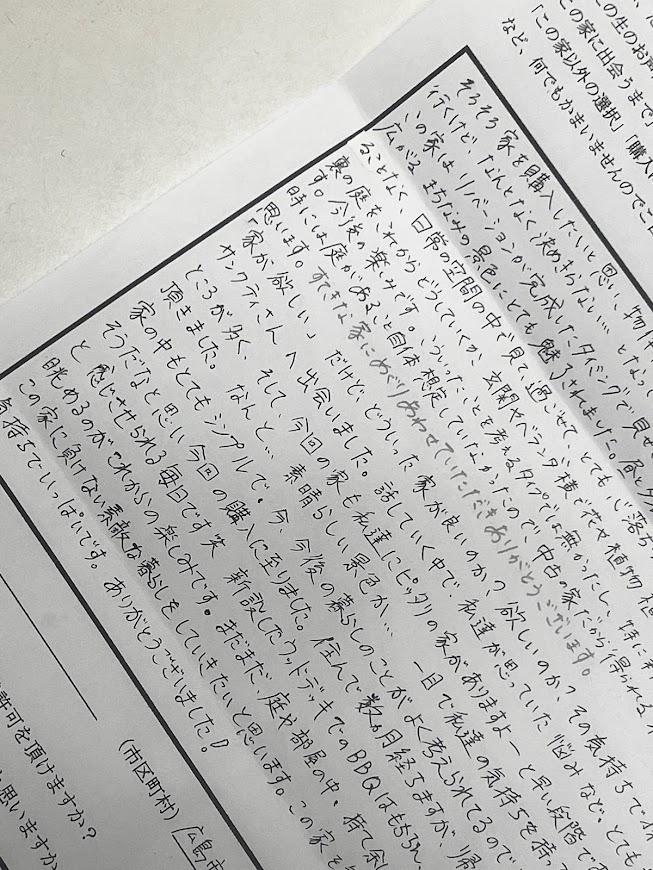 の生のお声
この家に出会うまで」
「この家以外の選択」「購入
など、何でもかまいませんのでご
そろそろ家を購入したいと思い、物件
行くけど、なんとなく決めきらない…となって
この家はリノベーションが完成したタイミングで見せ
広がるまちなみの景色にとても魅了されました。
ることなく、日常の空間の中で見て過ごせて、とても心落ち
裏の庭をこれからどうしていくか、玄関やベランダ横と花や植物
す。今後の楽しみです。こういったことを考えるタイプでは無かったし、特に
時には庭があること自体想定していなかったので、中古の家だから得られる
思います。すてきな家にめぐりあわせていただきありがとうございます。
「家が欲しい」だけど、どういった家が良いのか?欲しいのか?その気持ちで
サンクティさんへ出会いました。話していく中で、私達が思っていた悩みなど、とても
ところが多く、そして、今回の家も私達にピッタリの家がありますよーと早い段階で
頂きました。なんと…素晴らしい景色が…一目で私達の気持ちを持っ
家の中もとてもシンプルで。今、今後の暮らしのことがよく考えられてるので
そうだなと思い今回の購入に至りました。住んで数ヵ月経ちますが、帰
と感じさせられる毎日です笑 新設したウッドデッキでのBBQはもちろん、
眺めるのがこれからの楽しみです。まだまだ、庭や部屋の中。持て余
この家に負けない素敵な暮らしをしていきたいと思います。この家を
気持ちでいっぱいです。ありがとうございました!
(市区町村) 広島市
許可を頂けますか?
思いますか